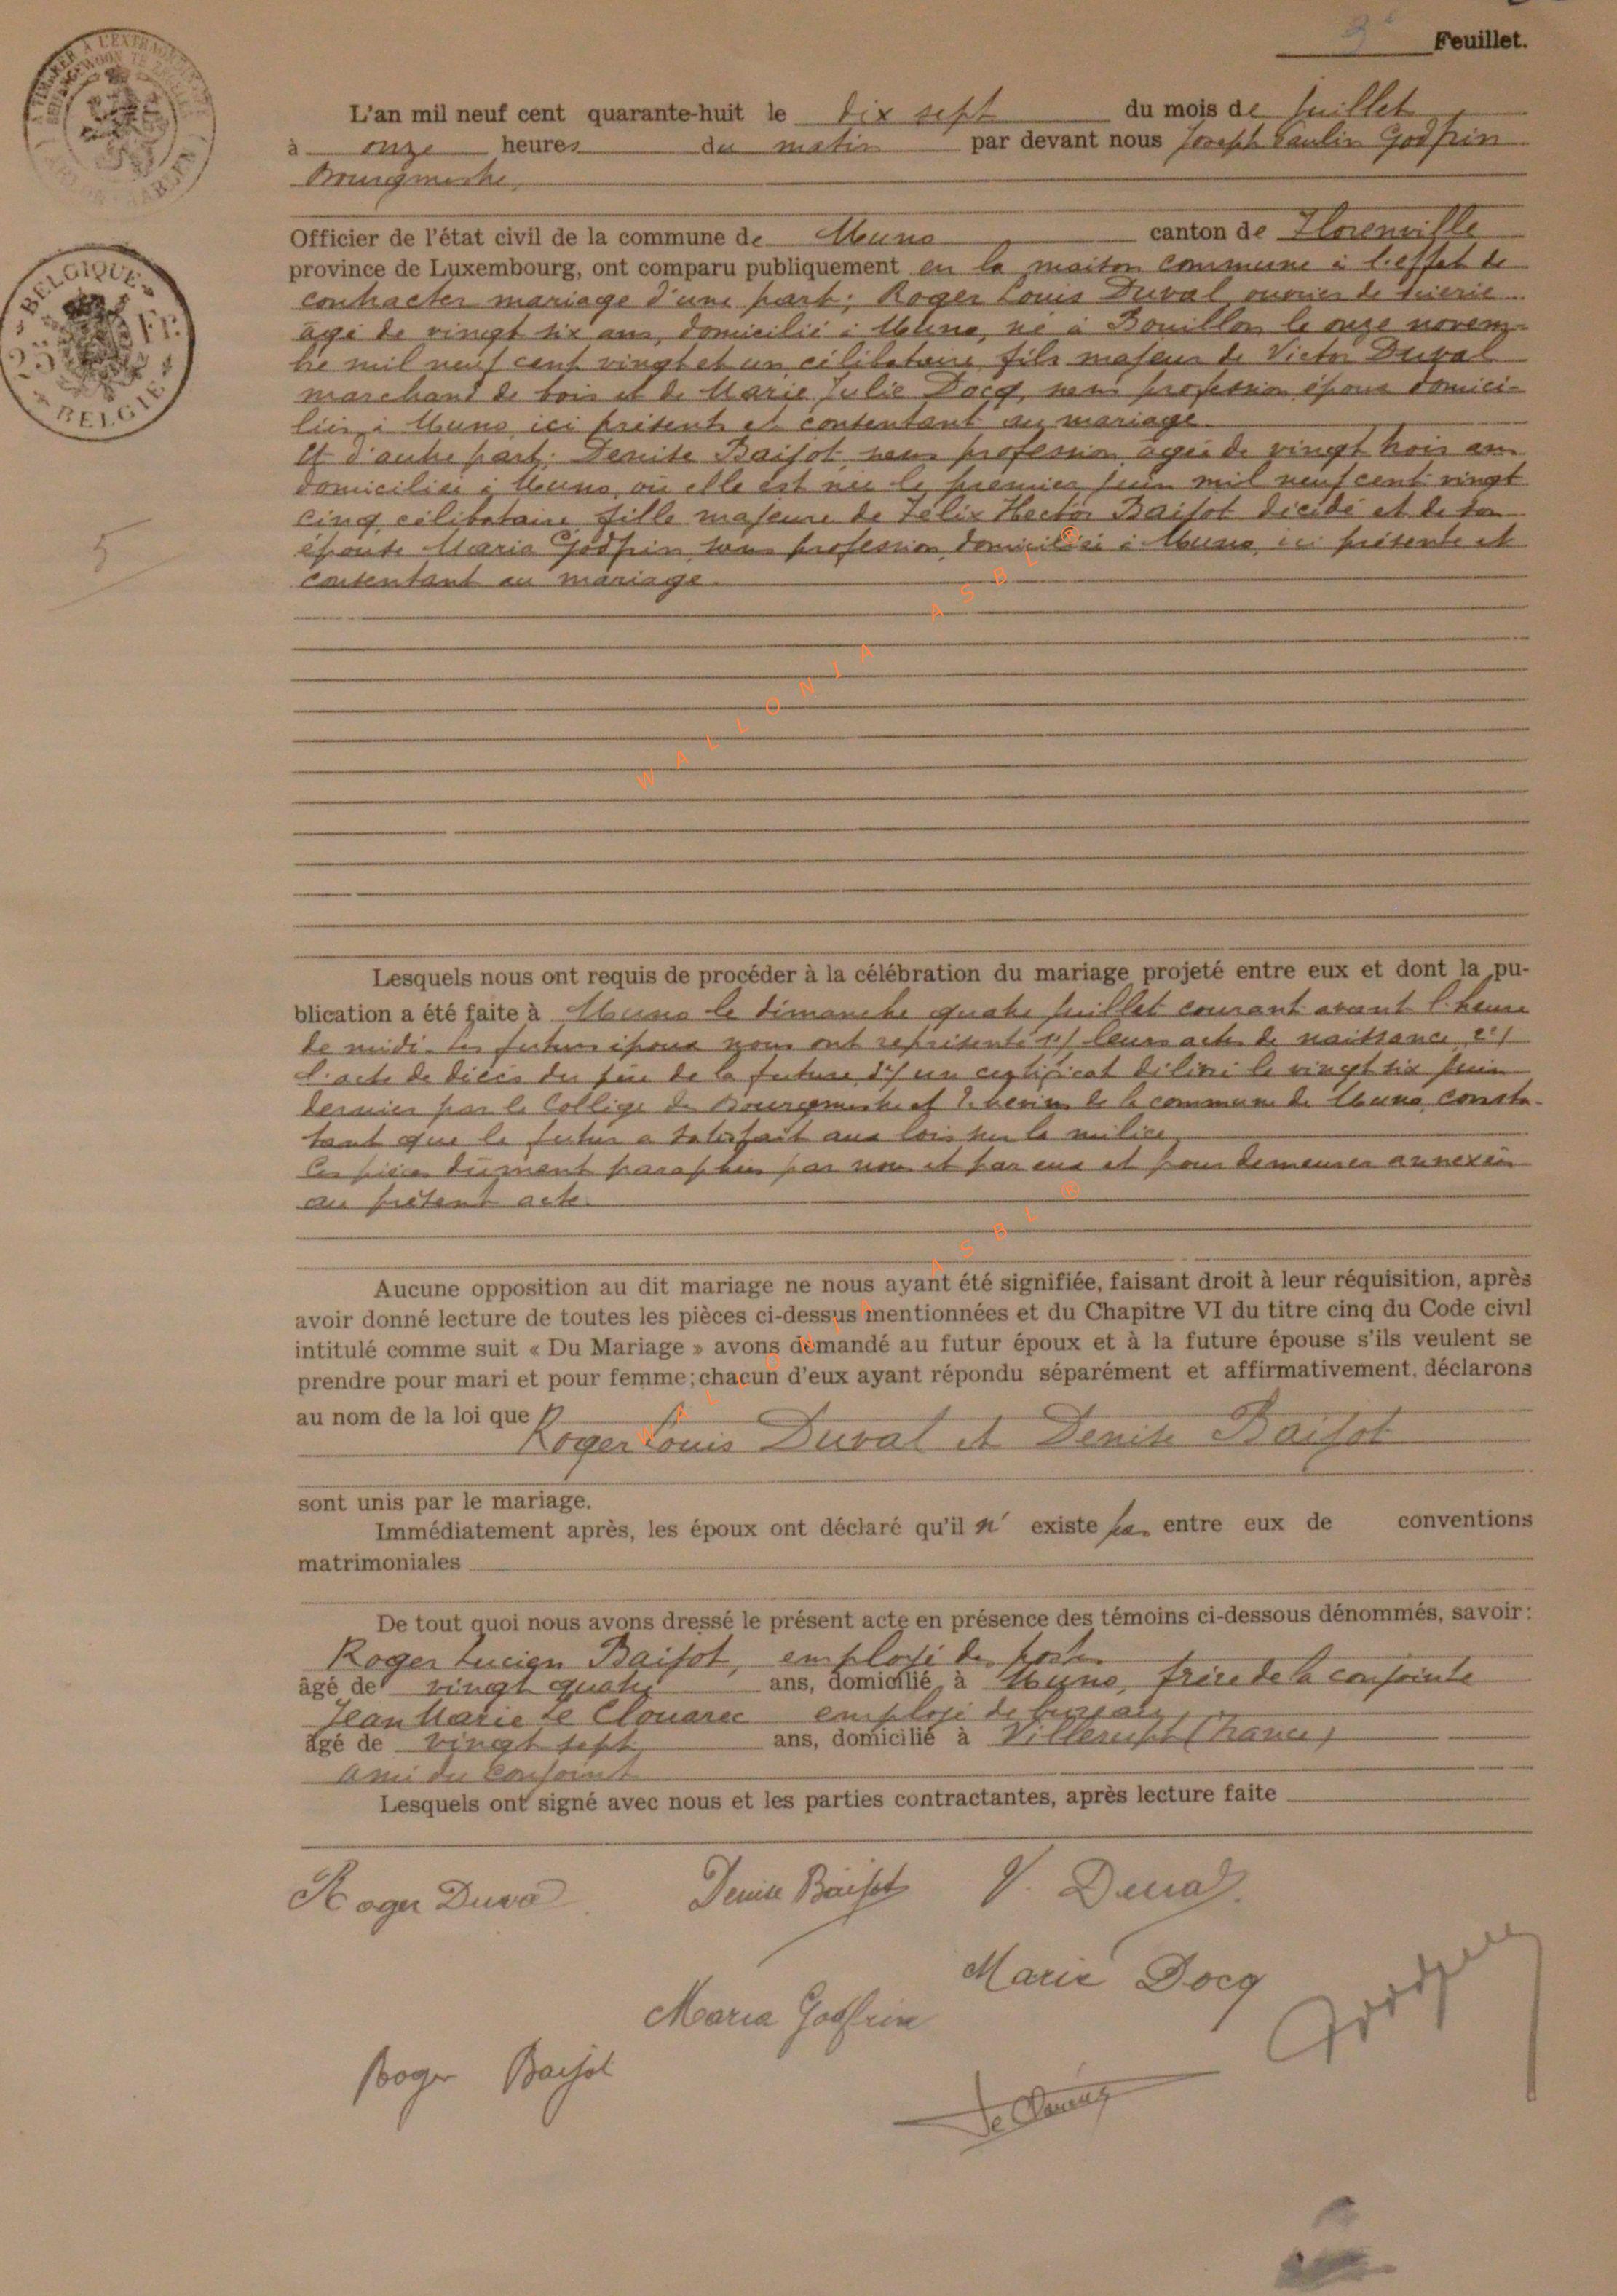 3e Feuillet.
L'an mil neuf cent quarante-huit le dix sept du mois de juillet
à onze heures du matin par devant nous Joseph Paulin Godfrin
Bourgmestre,
Officier de l'état civil de la commune de Muno canton de Florenville
province de Luxembourg, ont comparu publiquement en la maison commune à l'effet de
contracter mariage d'une part: Roger Louis Duval ouvrier de scierie
âgé de vingt six ans, domicilié à Muno, né à Bouillon le onze novem-
bre mil neuf cent vingt et un célibataire fils majeur de Victor Duval
marchand de bois et de Marie Julie Docq, sans profession époux domici-
liés à Muno, ici présents et consentant au mariage.
Et d'autre part: Denise Baijot, sans profession, âgée de vingt trois ans
domiciliée à Muno, où elle est née le premier juin mil neuf cent vingt
cinq célibataire fille majeure de Félix Hector Baijot décédé et de son
épouse Maria Godfrin sans profession domiciliée à Muno, ici présente et
consentant au mariage.
WALLONIA ASBL ®
Lesquels nous ont requis de procéder à la célébration du mariage projeté entre eux et dont la pu-
blication a été faite à Muno le dimanche quatre juillet courant avant l'heure
de midi. Les futurs époux nous ont représenté 1°/ leurs actes de naissance 2°/
l'acte de décès du père de la future 3°/ un certificat délivré le vingt six juin
dernier par le Collège des Bourgmestre et Echevins de la commune de Muno, consta-
tant que le futur a satisfait aux lois sur la milice,
Ces pièces dûment paraphées par nous et par eux et pour demeurer annexées
au présent acte.
Aucune opposition au dit mariage ne nous ayant été signifiée, faisant droit à leur réquisition, après
avoir donné lecture de toutes les pièces ci-dessus mentionnées et du Chapitre VI du titre cinq du Code civil
intitulé comme suit « Du Mariage » avons demandé au futur époux et à la future épouse s'ils veulent se
prendre pour mari et pour femme; chacun d'eux ayant répondu séparément et affirmativement, déclarons
au nom de la loi que
Roger Louis Duval et Denise Baijot
sont unis par le mariage.
Immédiatement après, les époux ont déclaré qu'il n' existe pas entre eux de conventions
matrimoniales
De tout quoi nous avons dressé le présent acte en présence des témoins ci-dessous dénommés, savoir:
Roger Lucien Baijot, employé des postes
âgé de vingt quatre ans, domicilié à Muno, frère de la conjointe
Jean Marie Le Clouarec employé de bureau,
âgé de vingt sept ans, domicilié à Villerupt (France)
ami du conjoint
Lesquels ont signé avec nous et les parties contractantes, après lecture faite
Roger Duval Denise Baijot V. Duval.
Marie Docq
Maria Godfrin Godfrin
Roger Baijot
BELGIQUE
25 Fr.
BELGIË
5